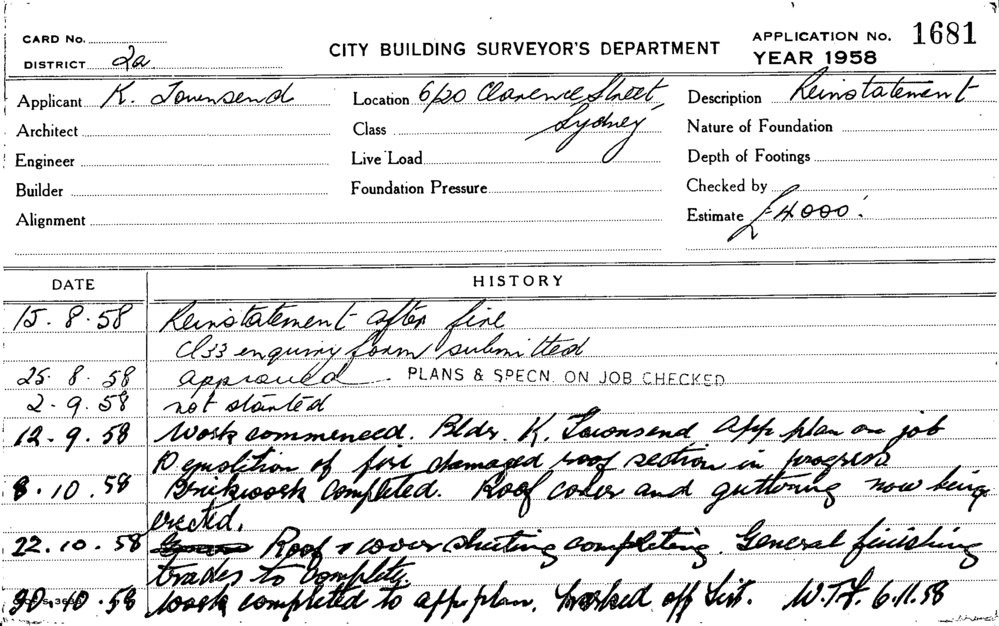 CARD No.
DISTRICT 2a
CITY BUILDING SURVEYOR'S DEPARTMENT
APPLICATION No. 1681
YEAR 1958
Applicant K. Townsend
Location 6/20 Clarence Street,
Sydney
Description Reinstatement
Architect
Class
Nature of Foundation
Engineer
Live Load
Depth of Footings
Builder
Foundation Pressure
Checked by
Alignment
Estimate £4000.
DATE
HISTORY
15. 8. 58 Reinstatement after fire
Cl 33 enquiry form submitted
25. 8. 58 approved. PLANS & SPECN. ON JOB CHECKED
2. 9. 58 not started
12. 9. 58 Work commenced. Bldr. K. Townsend App plan on job
Demolition of fire damaged roof section in progress
8. 10. 58 Brickwork completed. Roof cover and guttering now being
erected.
22. 10. 58 Roof & cover sheeting completing. General finishing
trades to complete.
30. 10. 58 Work completed to app. plan. Marked off List. 6.11.58